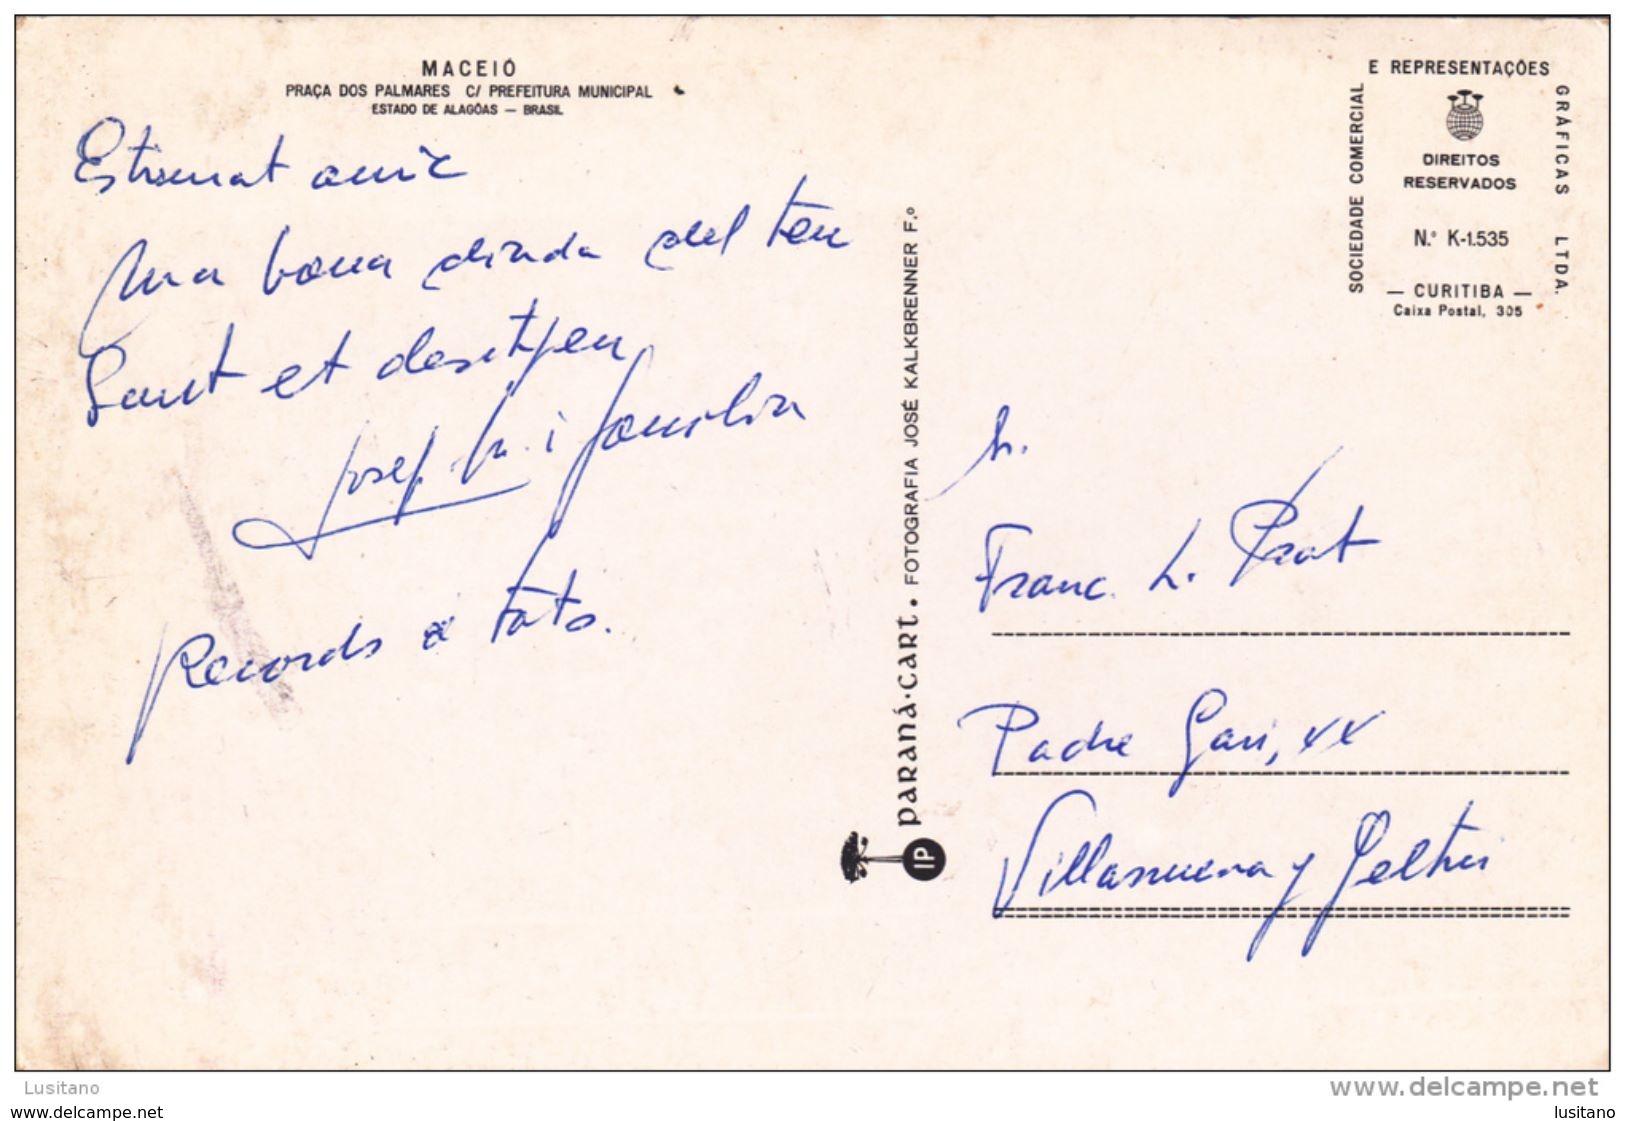 MACEIÓ
PRAÇA DOS PALMARES C/ PREFEITURA MUNICIPAL
ESTADO DE ALAGÔAS — BRASIL
Estimat amic
Una bona diada del teu
Sant et desitjen
Josep Mª i familia
Records a tots.
SOCIEDADE COMERCIAL
E REPRESENTAÇÕES
GRÁFICAS LTDA.
DIREITOS
RESERVADOS
N.º K-1.535
— CURITIBA —
Caixa Postal, 305
PARANÁ-CART. FOTOGRAFIA JOSÉ KALKBRENNER F.º
IP
Sr.
Franc. L. Prat
Padre Gari, xx
Villanueva y Geltru
Lusitano
www.delcampe.net
www.delcampe.net
lusitano